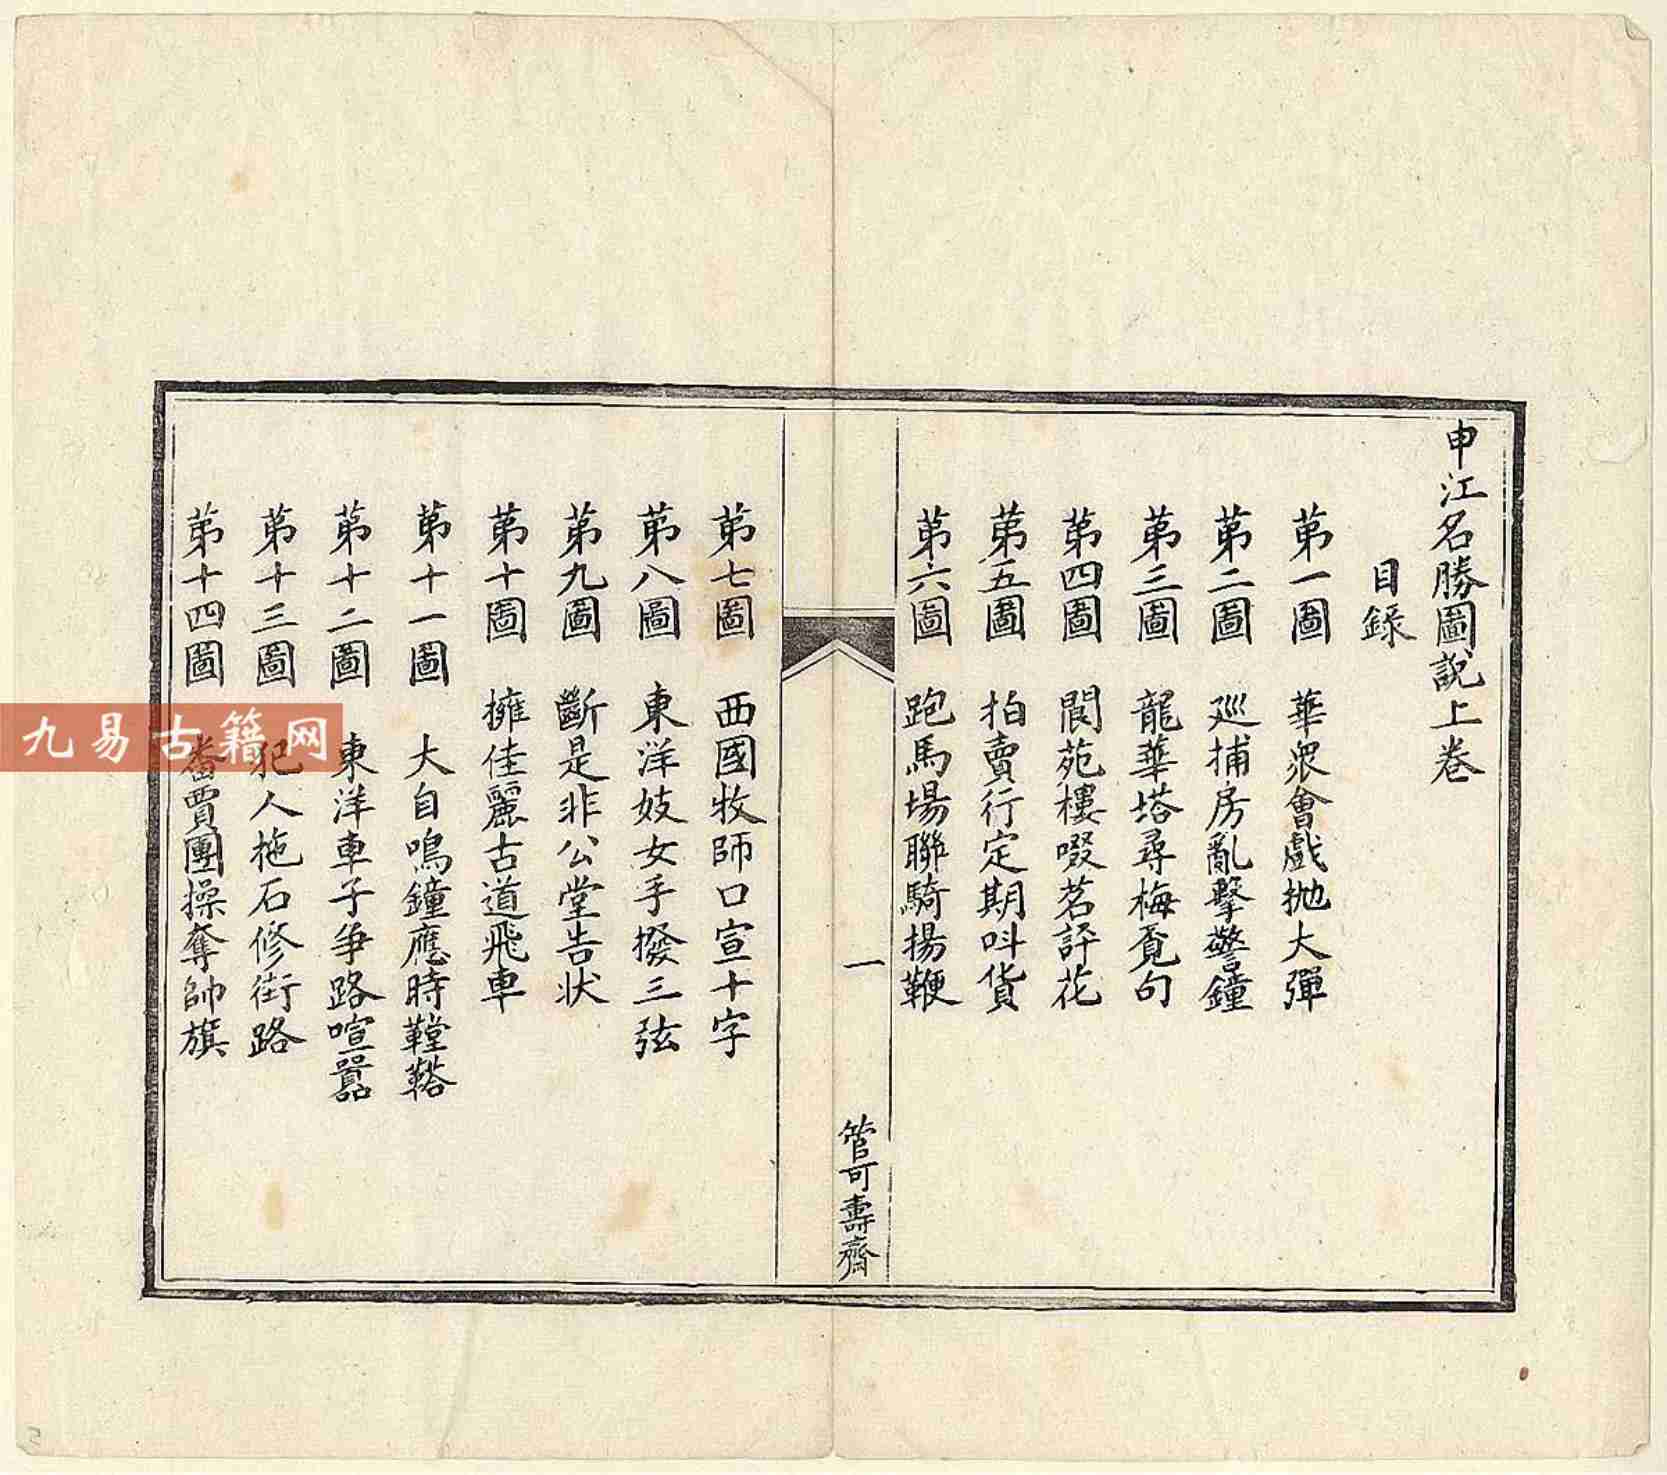 申江名勝圖說上卷
目錄
第一圖 華眾會戲拋大彈
第二圖 巡捕房亂擊警鐘
第三圖 龍華塔尋梅覓句
第四圖 閬苑樓啜茗評花
第五圖 拍賣行定期呌貨
第六圖 跑馬場聯騎揚鞭
一
管可壽齋
第七圖 西國牧師口宣十字
第八圖 東洋妓女手撥三弦
第九圖 斷是非公堂告狀
第十圖 擁佳麗古道飛車
第十一圖 大自鳴鐘應時鞺鞳
第十二圖 東洋車子爭路喧囂
第十三圖 犯人拖石修街路
第十四圖 番賈團操奪帥旗
九易古籍网